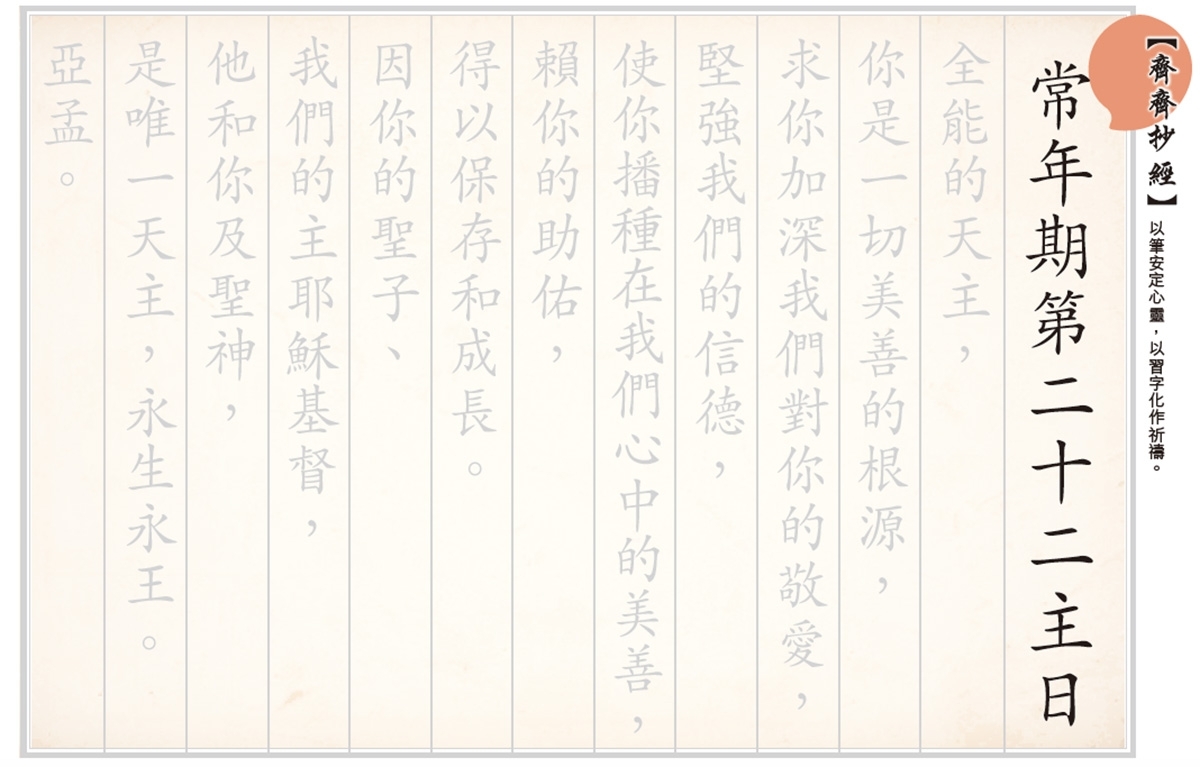 【齊齊抄經】以筆安定心靈，以習字化作祈禱。
常年期第二十二主日
全能的天主，
你是一切美善的根源，
求你加深我們對你的敬愛，
堅強我們的信德，
使你播種在我們心中的美善，
賴你的助佑，
得以保存和成長。
因你的聖子、
我們的主耶穌基督，
他和你及聖神，
是唯一天主，永生永王。
亞孟。